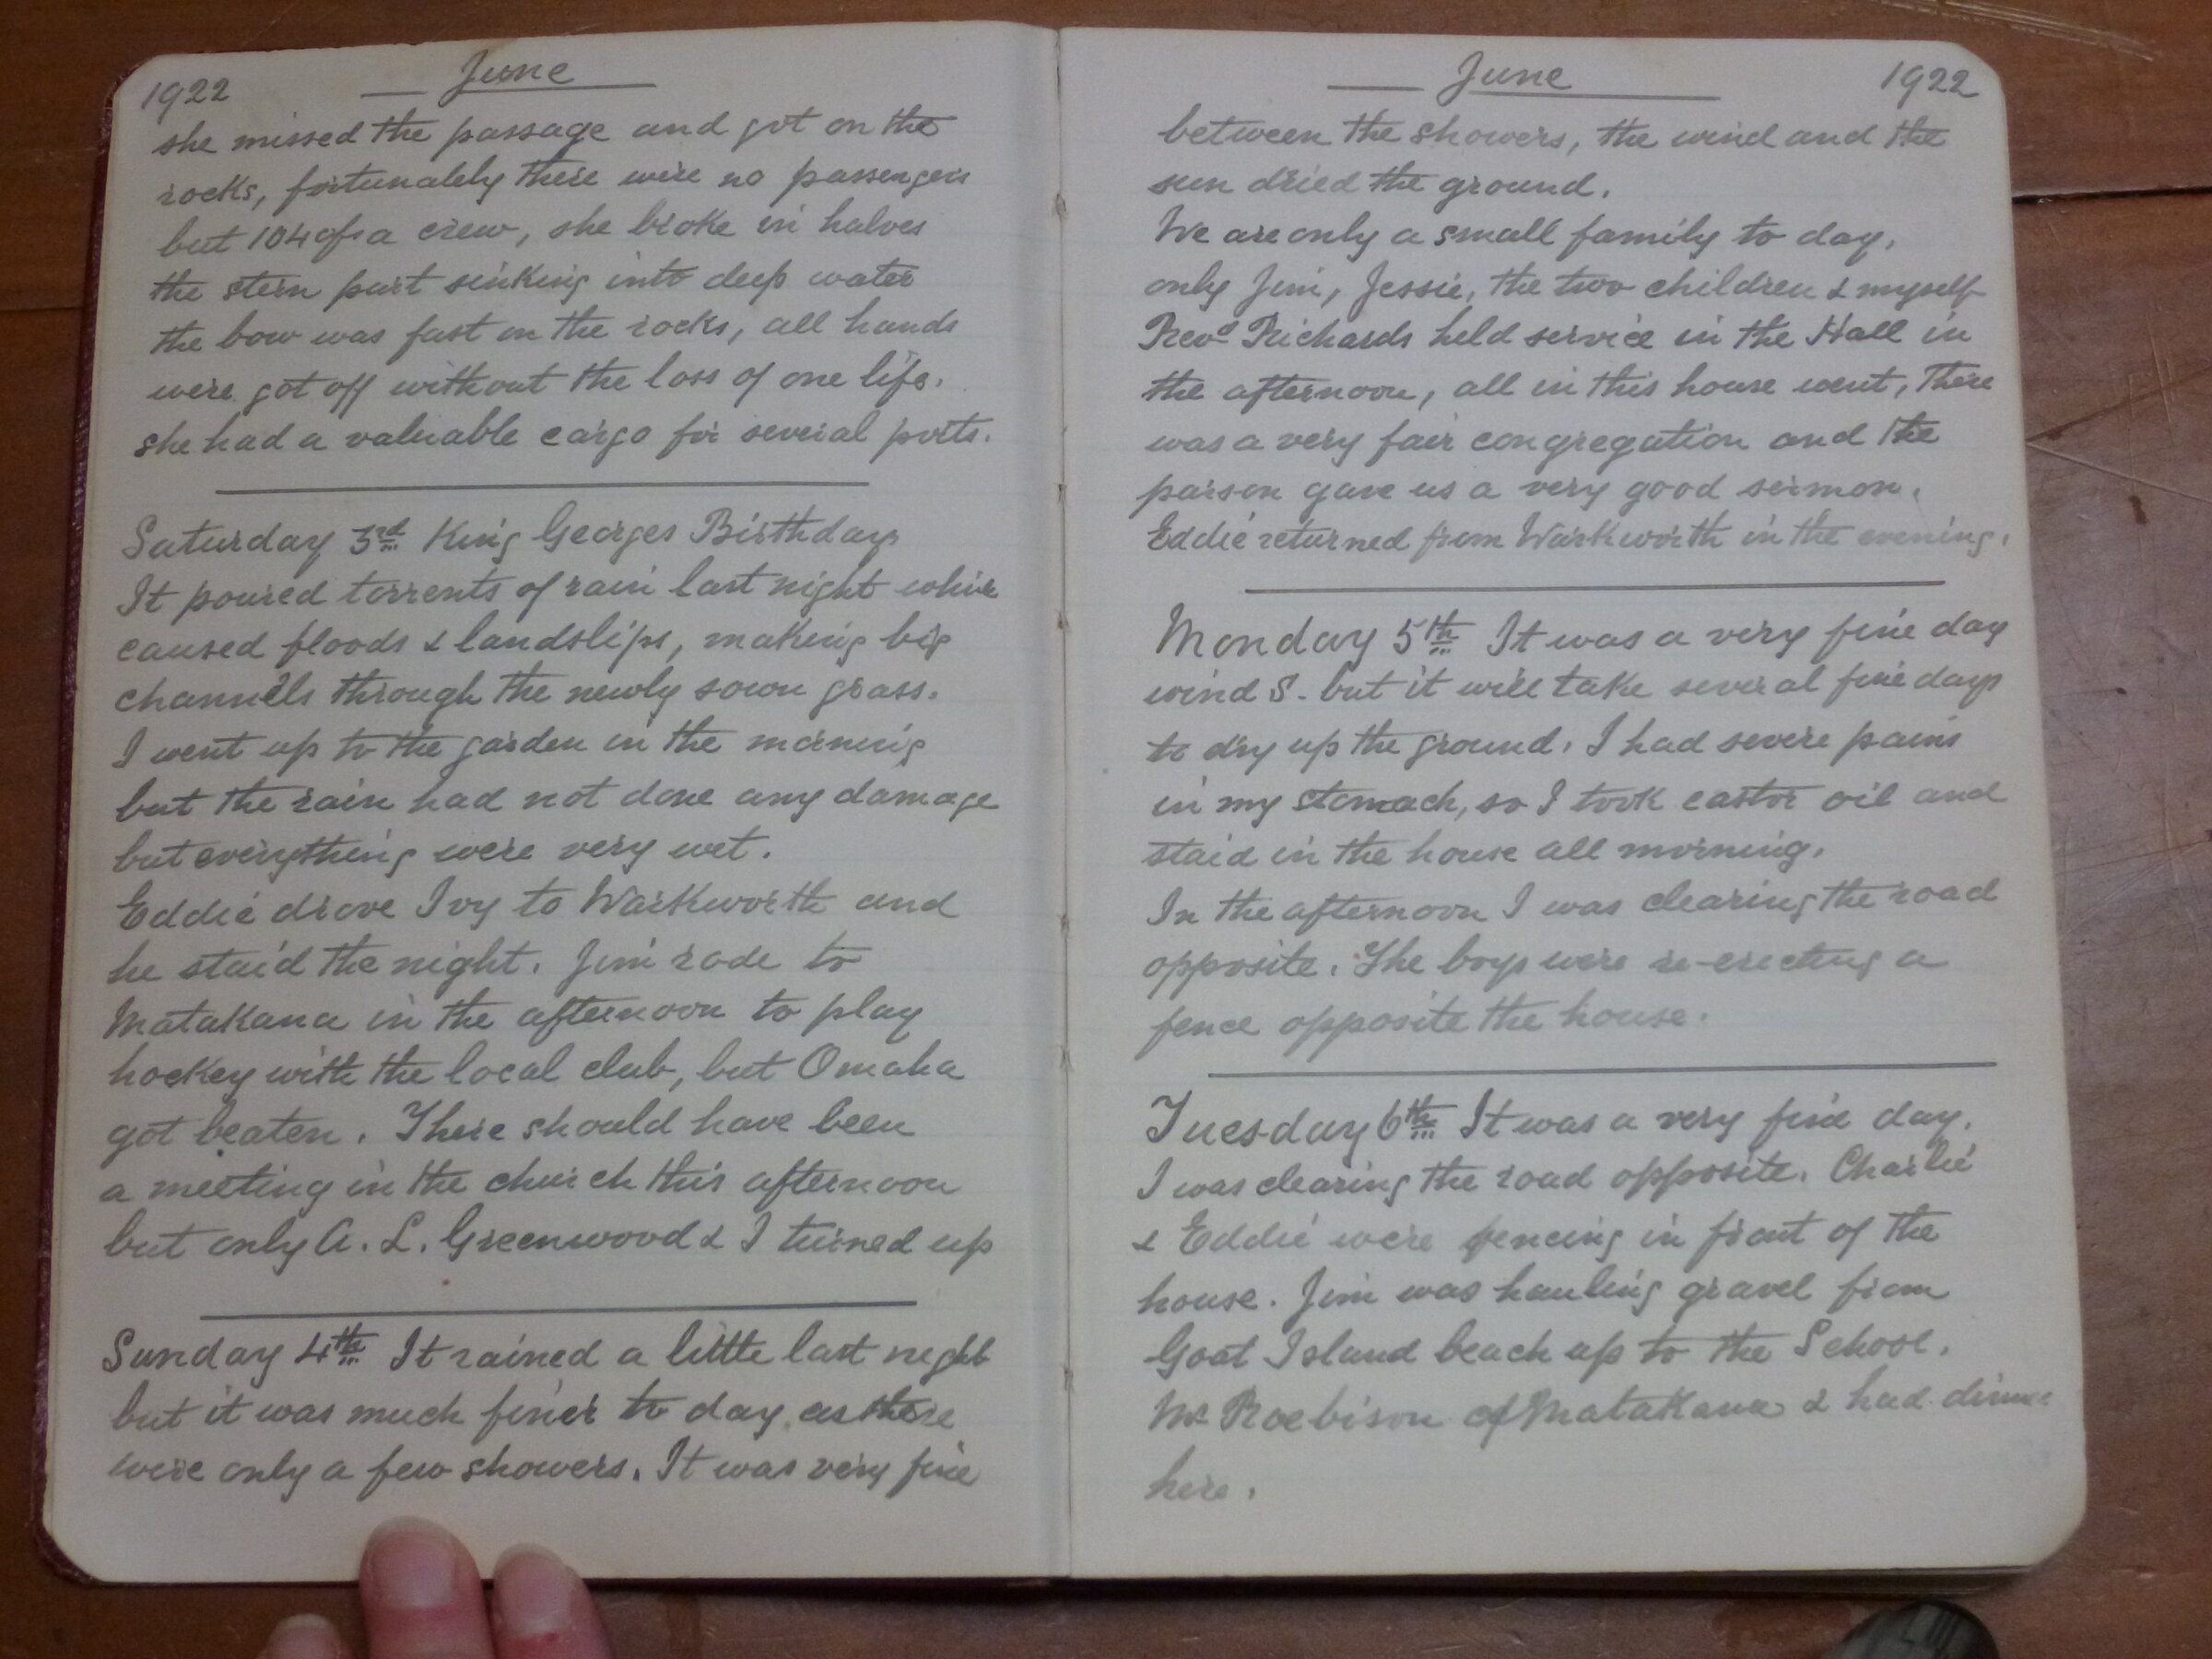 1922 June
she missed the passage and got on the
rocks, fortunately there were no passengers
but 104 of a crew, she broke in halves
the stern part sinking into deep water
the bow was fast on the rocks, all hands
were got off without the loss of one life.
she had a valuable cargo for several ports.
Saturday 3rd King Georges Birthday
It poured torrents of rain last night which
caused floods & landslips, making big
channels through the newly sown grass.
I went up to the garden in the morning
but the rain had not done any damage
but everything were very wet.
Eddie drove Ivy to Warkworth and
he staid the night. Jim rode to
Matakana in the afternoon to play
hockey with the local club, but Omaha
got beaten. There should have been
a meeting in the church this afternoon
but only A. L. Greenwood & I turned up
Sunday 4th It rained a little last night
but it was much finer to day as there
were only a few showers. It was very fine
June 1922
between the showers, the wind and the
sun dried the ground.
We are only a small family to day,
only Jim, Jessie, the two children & myself
Revd Richards held service in the Hall in
the afternoon, all in this house went, There
was a very fair congregation and the
parson gave us a very good sermon.
Eddie returned from Warkworth in the evening.
Monday 5th It was a very fine day
wind S. but it will take several fine days
to dry up the ground. I had severe pains
in my stomach, so I took castor oil and
staid in the house all morning.
In the afternoon I was clearing the road
opposite. The boys were re-erecting a
fence opposite the house.
Tuesday 6th It was a very fine day.
I was clearing the road opposite. Charlie
& Eddie were fencing in front of the
house. Jim was hauling gravel from
Goat Island beach up to the School.
Mr Roebison of Matakana & had dinner
here.